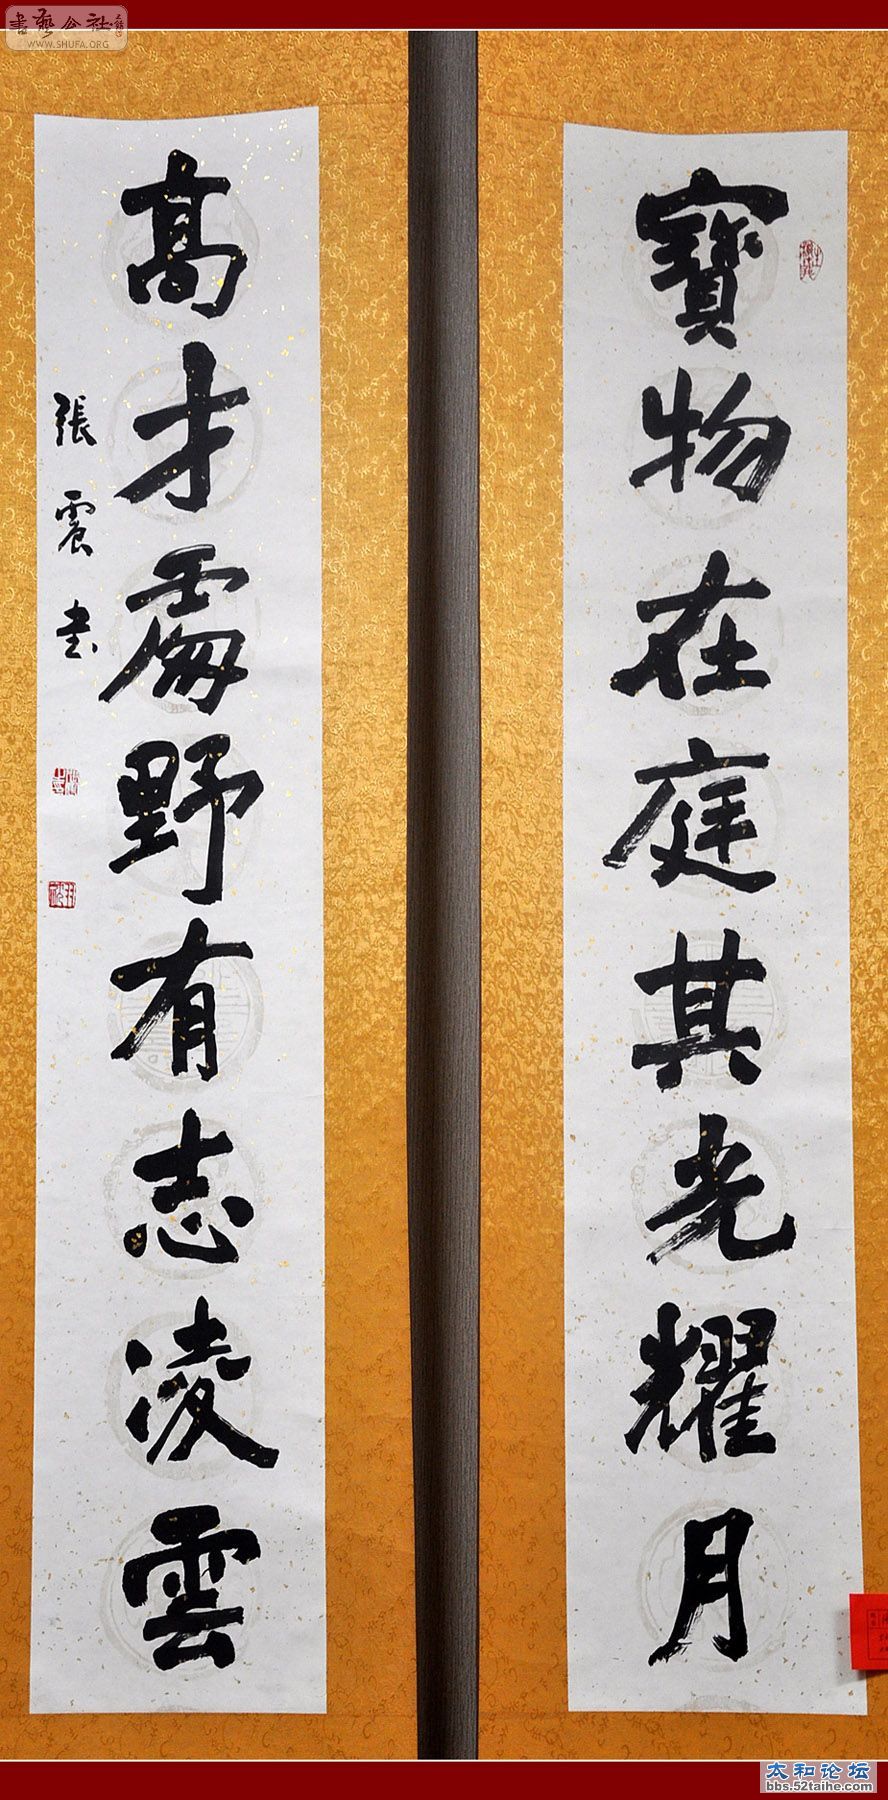 書藝公社
WWW.SHUFA.ORG
寶物在庭其光耀月
高才處野有志凌雲
張震书
太和论坛
bbs.52taihe.com